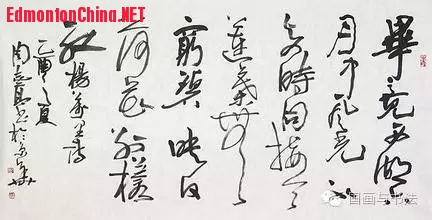 EdmontonChina.NET
畢竟西湖六
月中風光不
与四時同接天
蓮葉無
窮碧映日
荷花別樣
紅 楊萬里詩
乙酉之夏
周志高書於京華
国画与书法